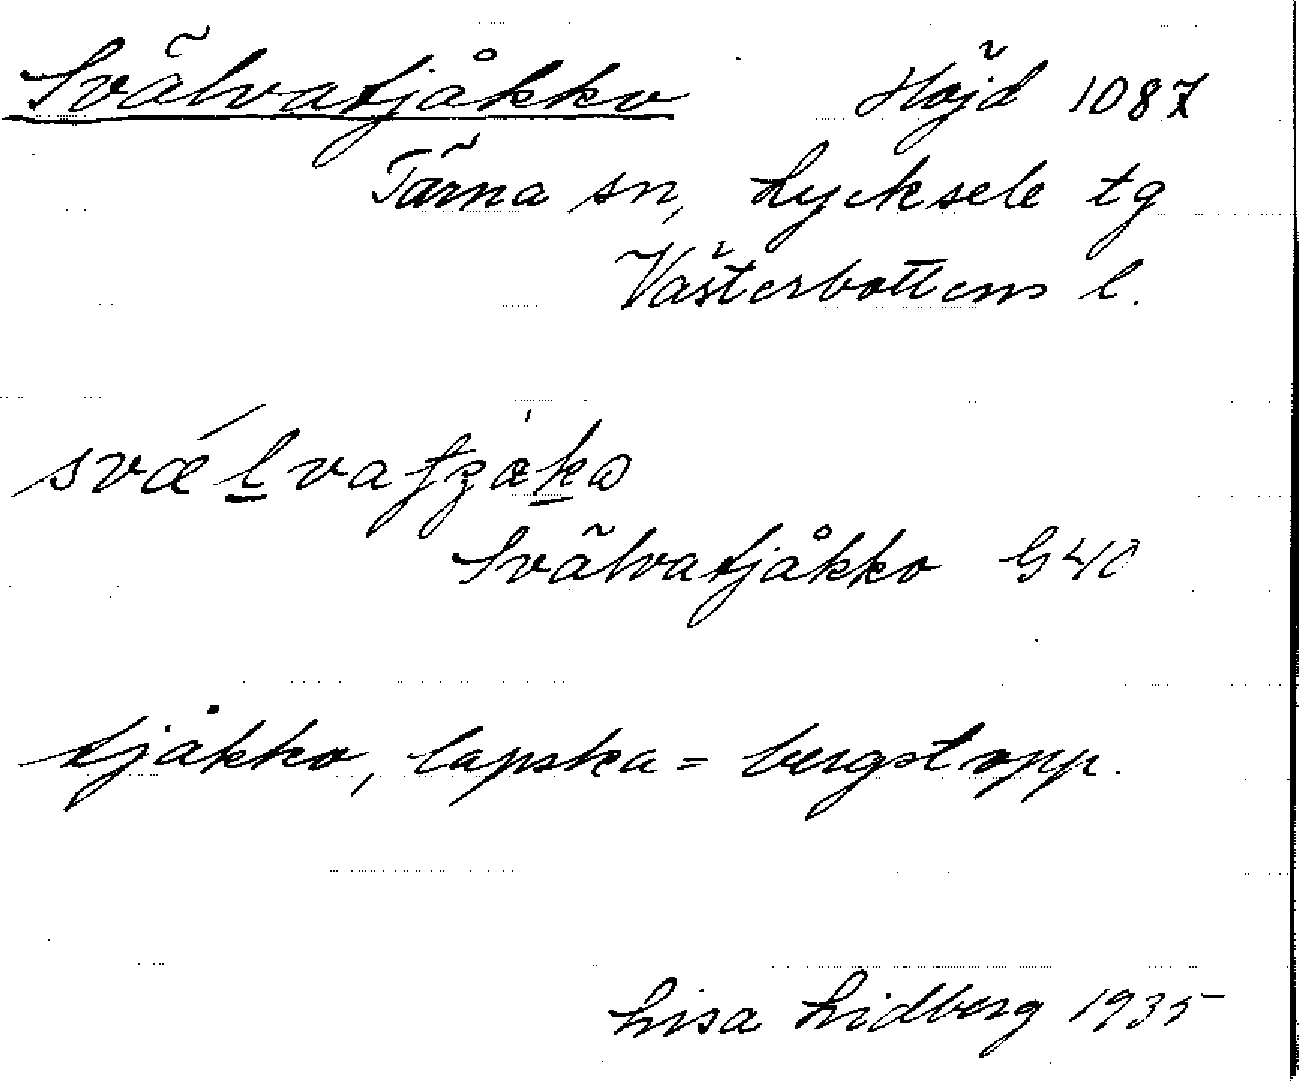 Svälvatjåkko Höjd 1087
Tärna sn, Lycksele tg
Västerbottens l.
Svälvatjåkko G40
tjåkko, lapska = bergstopp.
Lisa Lidberg 1935